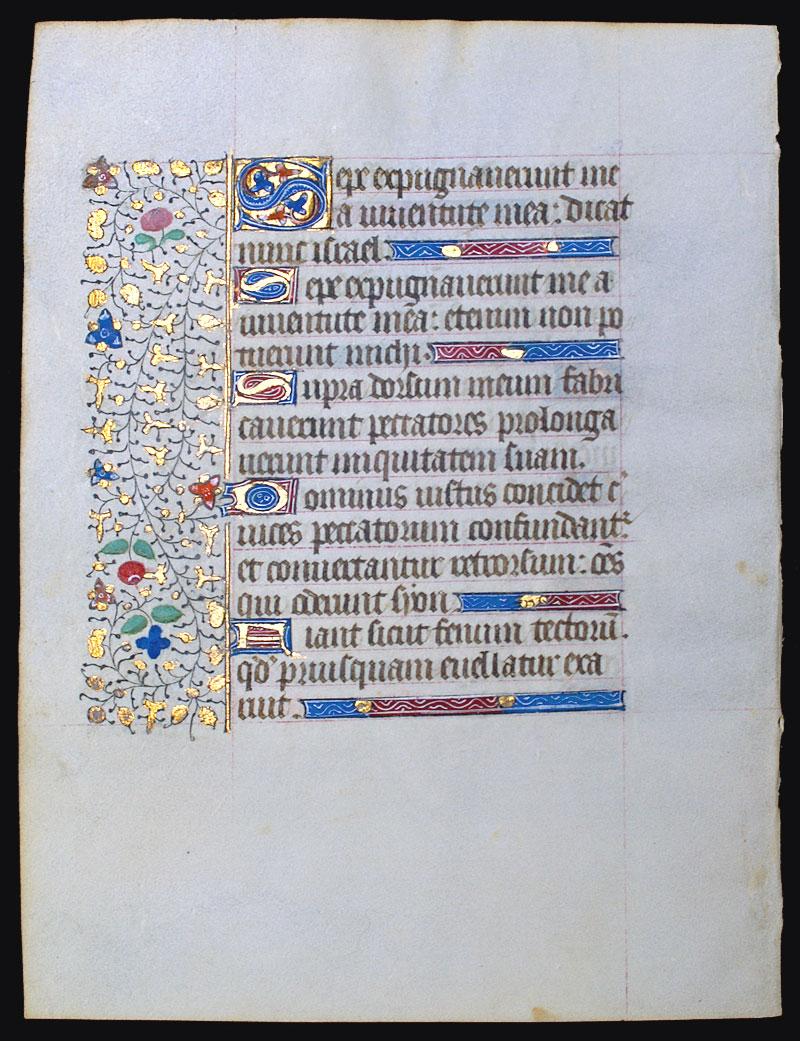 Sepe expugnauerunt me
a iuuentute mea: dicat
nunc israel.
Sepe expugnauerunt me a
iuuentute mea: etenim non po
tuerunt michi.
Supra dorsum meum fabri
cauerunt peccatores prolonga
uerunt iniquitatem suam.
Dominus iustus concidet c͛
uices peccatorum confundant᷑
et conuertantur retrorsum: oēs
qui oderunt syon.
Fiant sicut fenum tectorū.
qd᷒ priusquam euellatur exa
ruit.